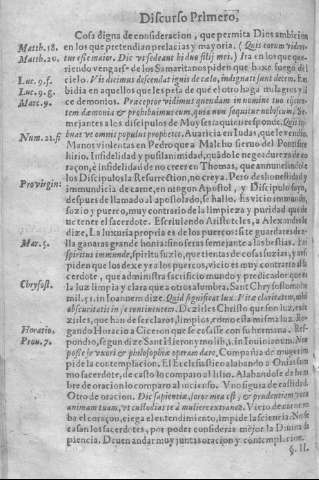 Discurso Primero,
Cosa digna de consideracion, que permita Dios ambicion
Matth. 18. en los que pretendian prelacias y mayoria. (Quis eorum videre-
Matth. 20. tur esse maior. Dic ut sedeant hi duo filij mei.) Ira en los que que-
riendo vengarse de los Samaritanos piden que baxe fuego del
Luc. 9. f. cielo. Vis dicimus descendat ignis de caelo, indignati sunt decem. Em
Luc. 9. g. bidia en aquellos que les pesa de que el otro haga milagros y lá
Marc. 9. ce demonios. Praeceptor vidimus quendam in nomine tuo eijcien-
tem daemonia & prohibuimus eum, quia non sequitur nobiscum. Se-
mejantes a los discipulos de Moyses a quien responde. Quis
Num. 11. omnis populus prophetet. Auaricia en Iudas, que le vendio.
Manos violentas en Pedro que a Malcho sieruo del Pontifice
hirio. Infidelidad y pusilanimidad, quádo le
raçon, è infidelidad de no creer en Thomas, que annunciandole
los Discipulos la Resurrection, no creya. Pero deshonestidad y
immundicia de carne, en ningun Apostol, y Discipulo suyo,
despues de llamado al apostolado, se hallo. Es vicio immundo,
suzio y puerco, muy contrario de la limpieza y puridad que de
ue tener el sacerdote. Escriuiendo Aristoteles, a Alexandro le
dize, La luxuria propria es de los puercos: si te guardares de
Mar. 5. lla ganaras grande honra: sino seras semejante a las bestias. En
spiritus immunde, spiritu suzio, que tientas de cosas suzias, y
piden que los dexe yr a los puercos, vicio es muy contrario al sa
cerdote, que administra sacrificio mundo y predicador que es
Chrysost. la luz limpia y clara que a otros alumbra. Sant Chrysostomo
in Ioannem dize. Quid significat lux. Vitae claritatem, nihil
obscuritatis in se continentem. Dezisles Christo que son luz,
ziles, que han de ser claros, limpios, como es la misma luz. Ro-
Horatio. gando Horacio a Ciceron que se casasse con su hermana. Res-
Prou. 7. pondio, segun dize Sant Hieronymo lib. 1. in Iouinianum. Non
posse se vxori & philosophiae operam dare, Compañia de muger im-
pide la contemplacion. El Ecclesiastico alabando a
mo sacerdote, de casto lo comparo al lilio. Alabandole de hom
bre de oracion lo comparo al incienso. Vno sigue de castidad.
Otro de oracion. Dic sapientiae, soror mea est, & prudentiam voca
animam tuam, ut custodias te à muliere extranea.
ba el coraçon, ciega el entendimiento, impide la sciencia: No se
casan los sacerdotes, por poder considerar mejor la Diuina sa
piencia. Deuen andar muy juntas oracion y contemplacion.
§. II.